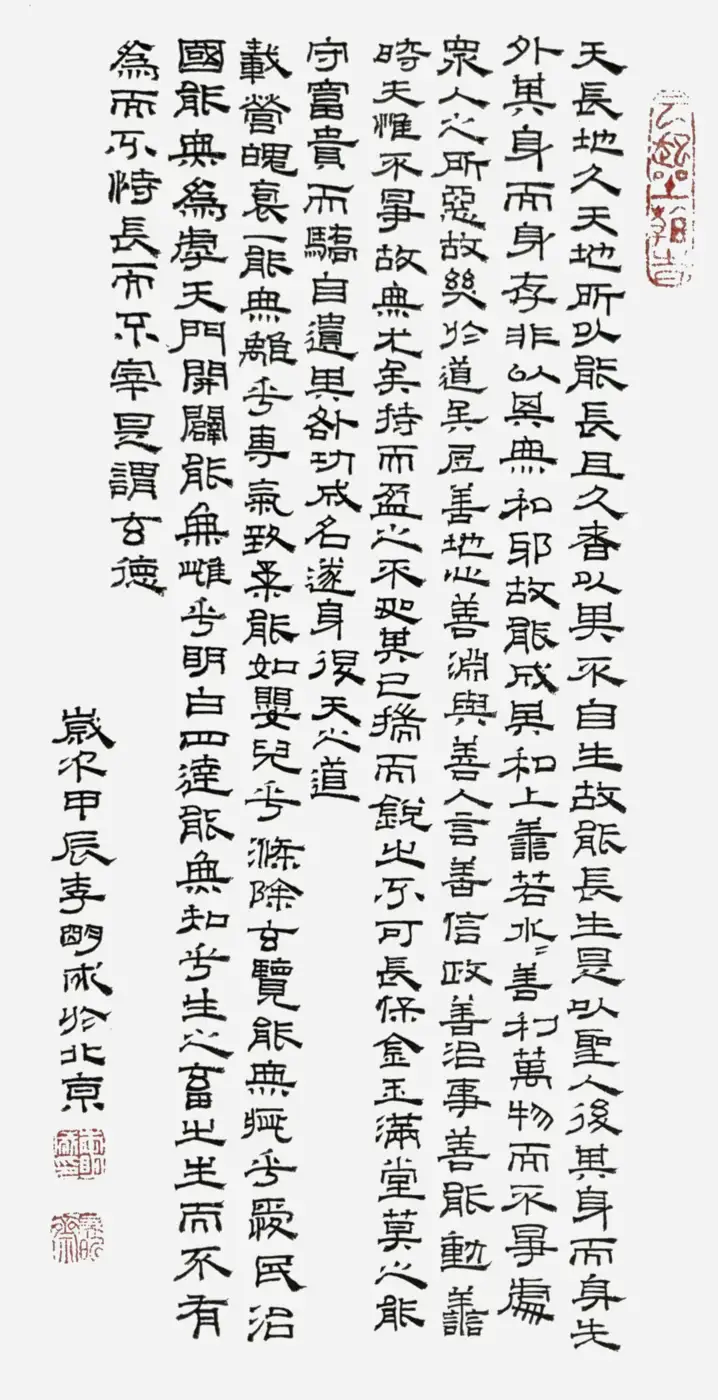 天長地久天地所以能長且久者以其不自生故能長生是以聖人後其身而身先
外其身而身存非以其無私邪故能成其私上善若水〻善利萬物而不爭處
眾人之所惡故幾於道矣居善地心善淵與善人言善信政善治事善能動善
時夫惟不爭故無尤矣持而盈之不如其已揣而銳之不可長保金玉滿堂莫之能
守富貴而驕自遺其咎功成名遂身退天之道
載營魄袌一能無離乎專氣致柔能如嬰兒乎滌除玄覽能無疵乎愛民治
國能無為乎天門開闢能無雌乎明白四達能無知乎生之畜之生而不有
為而不恃長而不宰是謂玄德
歲次甲辰李明於北京